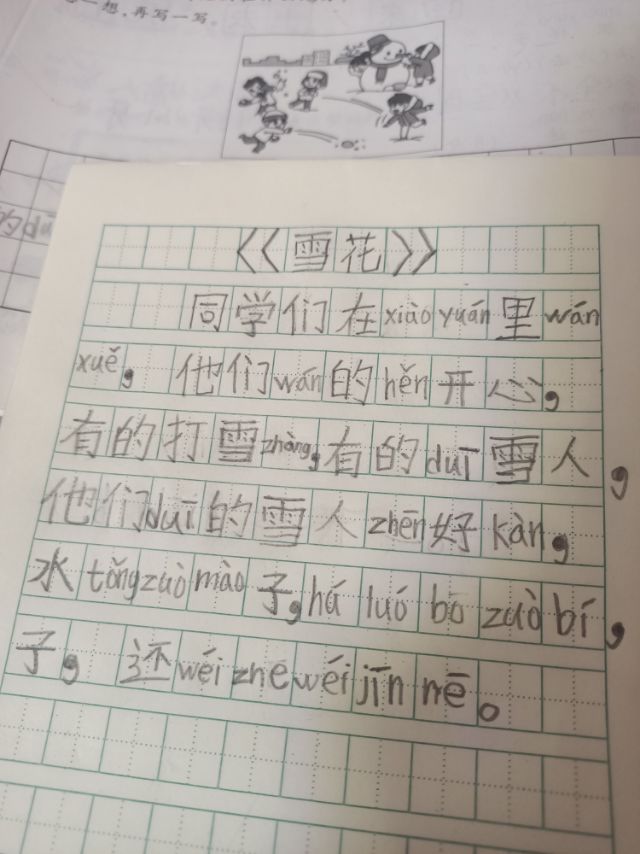 想，再写一写。
的duī
《雪花》
同学们在xiào yuán里wán
xuě，他们wán的hěn开心，
有的打雪zhàng，有的duī雪人，
他们duī的雪人zhēn好kàn，
水tǒngzuòmào子，há luó bo zuò bí，
子，还wéi zhe wéi jīn nē。